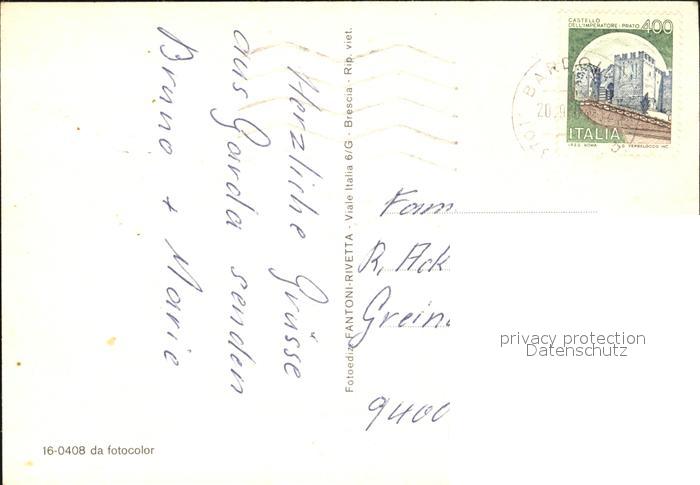 Herzliche Grüsse
aus Garda senden
Bruno + Marie
16-0408 da fotocolor
Fotoedizi FANTONI-RIVETTA - Viale Italia 6/G - Brescia - Rip. viet.
CASTELLO
DELL'IMPERATORE - PRATO 400
ITALIA
I.P.Z.S. ROMA
BARDOL
20.9
Fam.
R. Ack
Grein
9400
privacy protection
Datenschutz